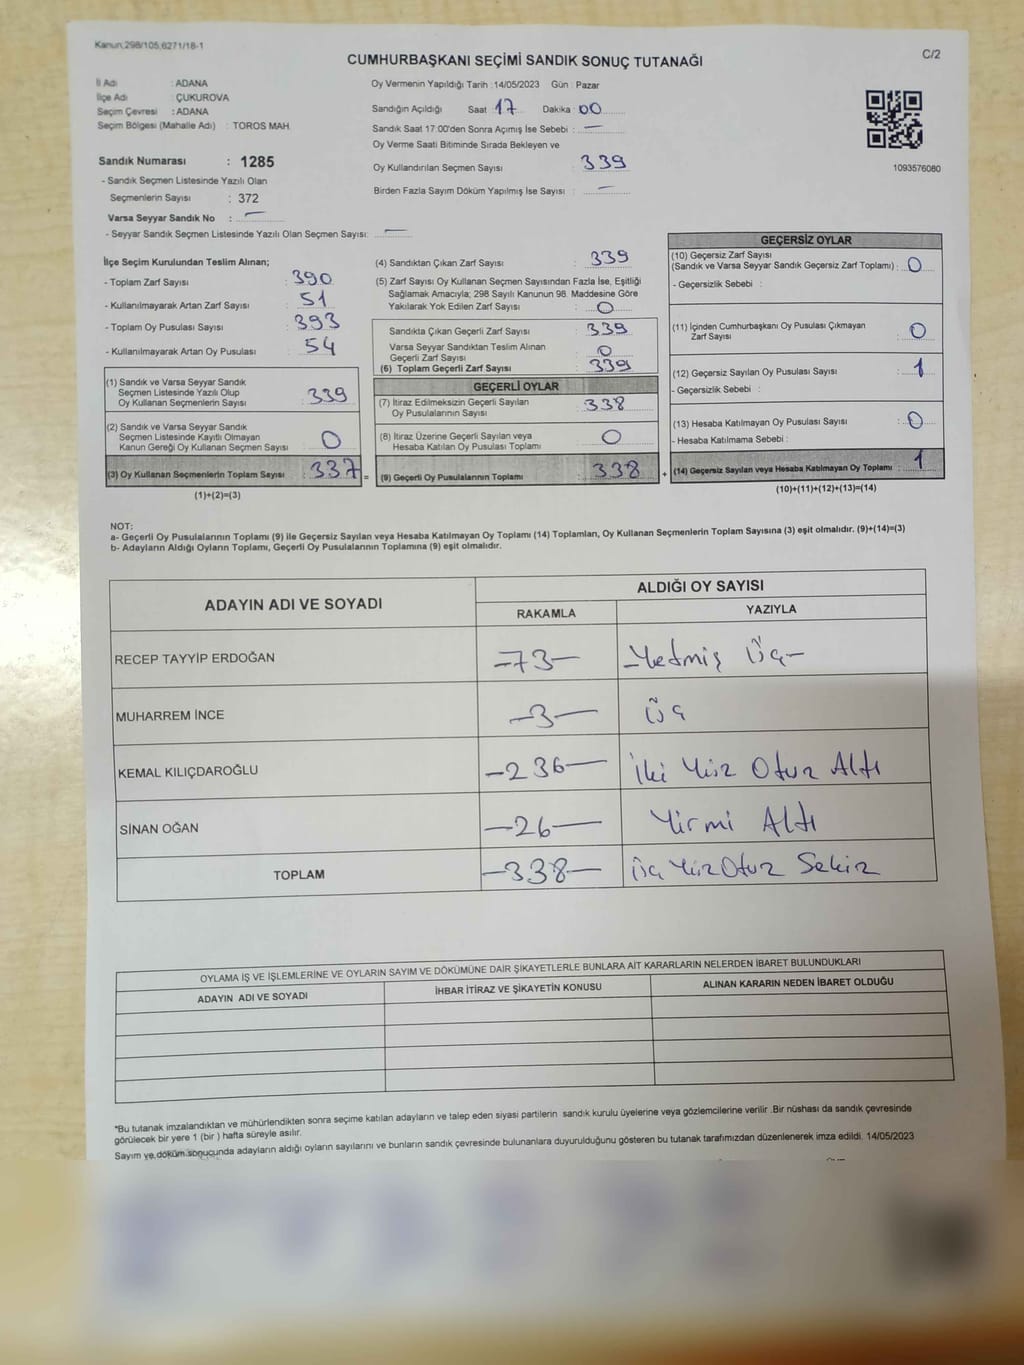 Kanun;298/105,6271/18-1
C/2
CUMHURBAŞKANI SEÇİMİ SANDIK SONUÇ TUTANAĞI
İl Adı : ADANA
İlçe Adı : ÇUKUROVA
Seçim Çevresi : ADANA
Seçim Bölgesi (Mahalle Adı) : TOROS MAH.
Sandık Numarası : 1285
- Sandık Seçmen Listesinde Yazılı Olan
Seçmenlerin Sayısı : 372
Varsa Seyyar Sandık No : —
- Seyyar Sandık Seçmen Listesinde Yazılı Olan Seçmen Sayısı: —
Oy Vermenin Yapıldığı Tarih :14/05/2023 Gün : Pazar
Sandığın Açıldığı Saat :17 Dakika :00
Sandık Saat 17:00'den Sonra Açımış İse Sebebi : —
Oy Verme Saati Bitiminde Sırada Bekleyen ve
Oy Kullandırılan Seçmen Sayısı : 339
Birden Fazla Sayım Döküm Yapılmış İse Sayısı : —
1093576080
İlçe Seçim Kurulundan Teslim Alınan;
- Toplam Zarf Sayısı : 390
- Kullanılmayarak Artan Zarf Sayısı : 51
- Toplam Oy Pusulası Sayısı : 393
- Kullanılmayarak Artan Oy Pusulası : 54
(1) Sandık ve Varsa Seyyar Sandık
Seçmen Listesinde Yazılı Olup
Oy Kullanan Seçmenlerin Sayısı : 339
(2) Sandık ve Varsa Seyyar Sandık
Seçmen Listesinde Kayıtlı Olmayan
Kanun Gereği Oy Kullanan Seçmen Sayısı : 0
(3) Oy Kullanan Seçmenlerin Toplam Sayısı : 337 =
(1)+(2)=(3)
(4) Sandıktan Çıkan Zarf Sayısı : 339
(5) Zarf Sayısı Oy Kullanan Seçmen Sayısından Fazla İse, Eşitliği
Sağlamak Amacıyla; 298 Sayılı Kanunun 98. Maddesine Göre
Yakılarak Yok Edilen Zarf Sayısı : 0
Sandıkta Çıkan Geçerli Zarf Sayısı : 339
Varsa Seyyar Sandıktan Teslim Alınan
Geçerli Zarf Sayısı : 0
(6) Toplam Geçerli Zarf Sayısı : 339
GEÇERLİ OYLAR
(7) İtiraz Edilmeksizin Geçerli Sayılan
Oy Pusulalarının Sayısı : 338
(8) İtiraz Üzerine Geçerli Sayılan veya
Hesaba Katılan Oy Pusulası Toplamı : 0
(9) Geçerli Oy Pusulalarının Toplamı : 338 +
GEÇERSİZ OYLAR
(10) Geçersiz Zarf Sayısı
(Sandık ve Varsa Seyyar Sandık Geçersiz Zarf Toplamı) : 0
- Geçersizlik Sebebi :
(11) İçinden Cumhurbaşkanı Oy Pusulası Çıkmayan
Zarf Sayısı : 0
(12) Geçersiz Sayılan Oy Pusulası Sayısı : 1
- Geçersizlik Sebebi :
(13) Hesaba Katılmayan Oy Pusulası Sayısı : 0
- Hesaba Katılmama Sebebi :
(14) Geçersiz Sayılan veya Hesaba Katılmayan Oy Toplamı : 1
(10)+(11)+(12)+(13)=(14)
NOT:
a- Geçerli Oy Pusulalarının Toplamı (9) ile Geçersiz Sayılan veya Hesaba Katılmayan Oy Toplamı (14) Toplamları, Oy Kullanan Seçmenlerin Toplam Sayısına (3) eşit olmalıdır. (9)+(14)=(3)
b- Adayların Aldığı Oyların Toplamı, Geçerli Oy Pusulalarının Toplamına (9) eşit olmalıdır.
ADAYIN ADI VE SOYADI
ALDIĞI OY SAYISI
RAKAMLA YAZIYLA
RECEP TAYYİP ERDOĞAN —73— —Yetmiş Üç—
MUHARREM İNCE —3— Üç
KEMAL KILIÇDAROĞLU —236— İki Yüz Otuz Altı
SİNAN OĞAN —26— Yirmi Altı
TOPLAM —338— Üç Yüz Otuz Sekiz
OYLAMA İŞ VE İŞLEMLERİNE VE OYLARIN SAYIM VE DÖKÜMÜNE DAİR ŞİKAYETLERLE BUNLARA AİT KARARLARIN NELERDEN İBARET BULUNDUKLARI
ADAYIN ADI VE SOYADI İHBAR İTİRAZ VE ŞİKAYETİN KONUSU ALINAN KARARIN NEDEN İBARET OLDUĞU
*Bu tutanak imzalandıktan ve mühürlendikten sonra seçime katılan adayların ve talep eden siyasi partilerin sandık kurulu üyelerine veya gözlemcilerine verilir .Bir nüshası da sandık çevresinde
görülecek bir yere 1 (bir ) hafta süreyle asılır.
Sayım ve döküm sonucunda adayların aldığı oyların sayılarını ve bunların sandık çevresinde bulunanlara duyurulduğunu gösteren bu tutanak tarafımızdan düzenlenerek imza edildi. 14/05/2023